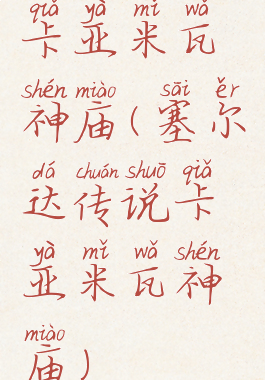 qiǎ yà mǐ wǎ
卡亚米瓦
shén miào sāi ěr
神庙(塞尔
dá chuán shuō qiǎ
达传说卡
yà mǐ wǎ shén
亚米瓦神
miào
庙)